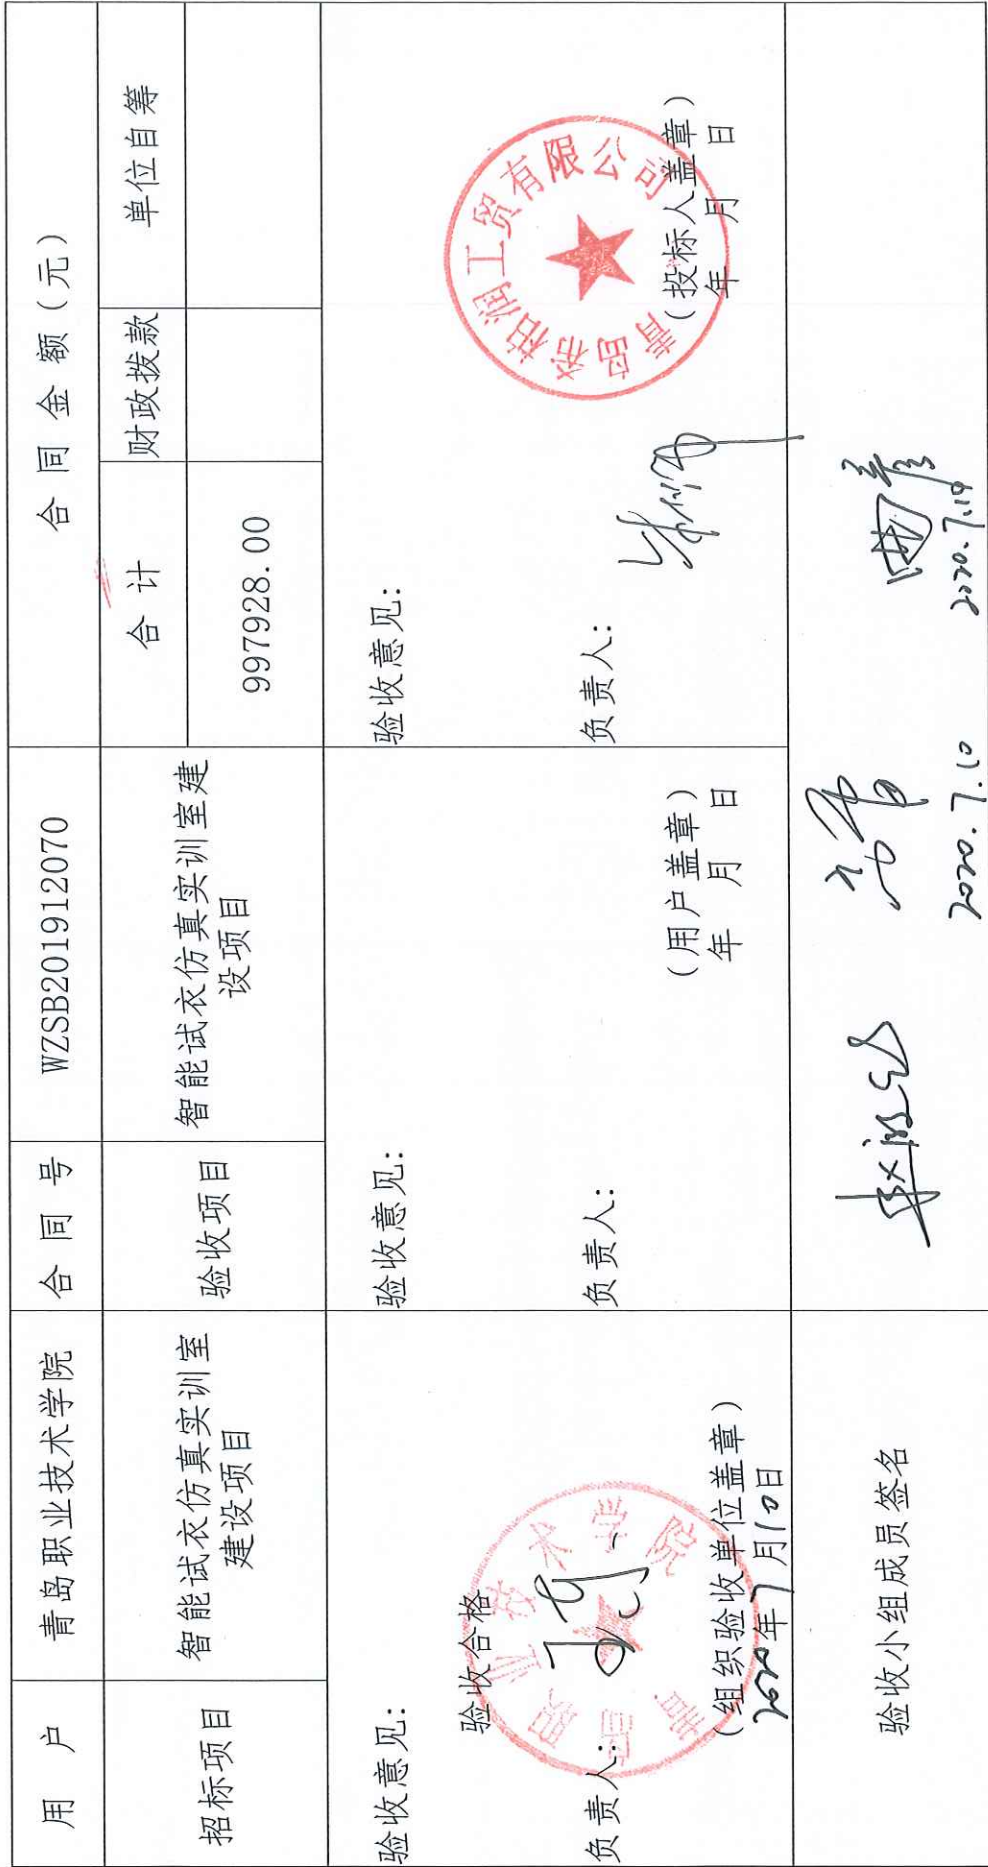 用 户 青岛职业技术学院 合 同 号 WZSB201912070 合 同 金 额（元）
招标项目 智能试衣仿真实训室建设项目 验收项目 智能试衣仿真实训室建设项目 合 计 财政拨款 单位自筹
997928.00
验收意见：
验收合格
负责人：
（组织验收单位盖章）
2020年7月10日
青岛职业技术学院
验收意见：
负责人：
（用户盖章）
年 月 日
验收意见：
负责人：
（投标人盖章）
年 月 日
青岛希柏润工贸有限公司
验收小组成员签名
2020.7.10
2020.7.10